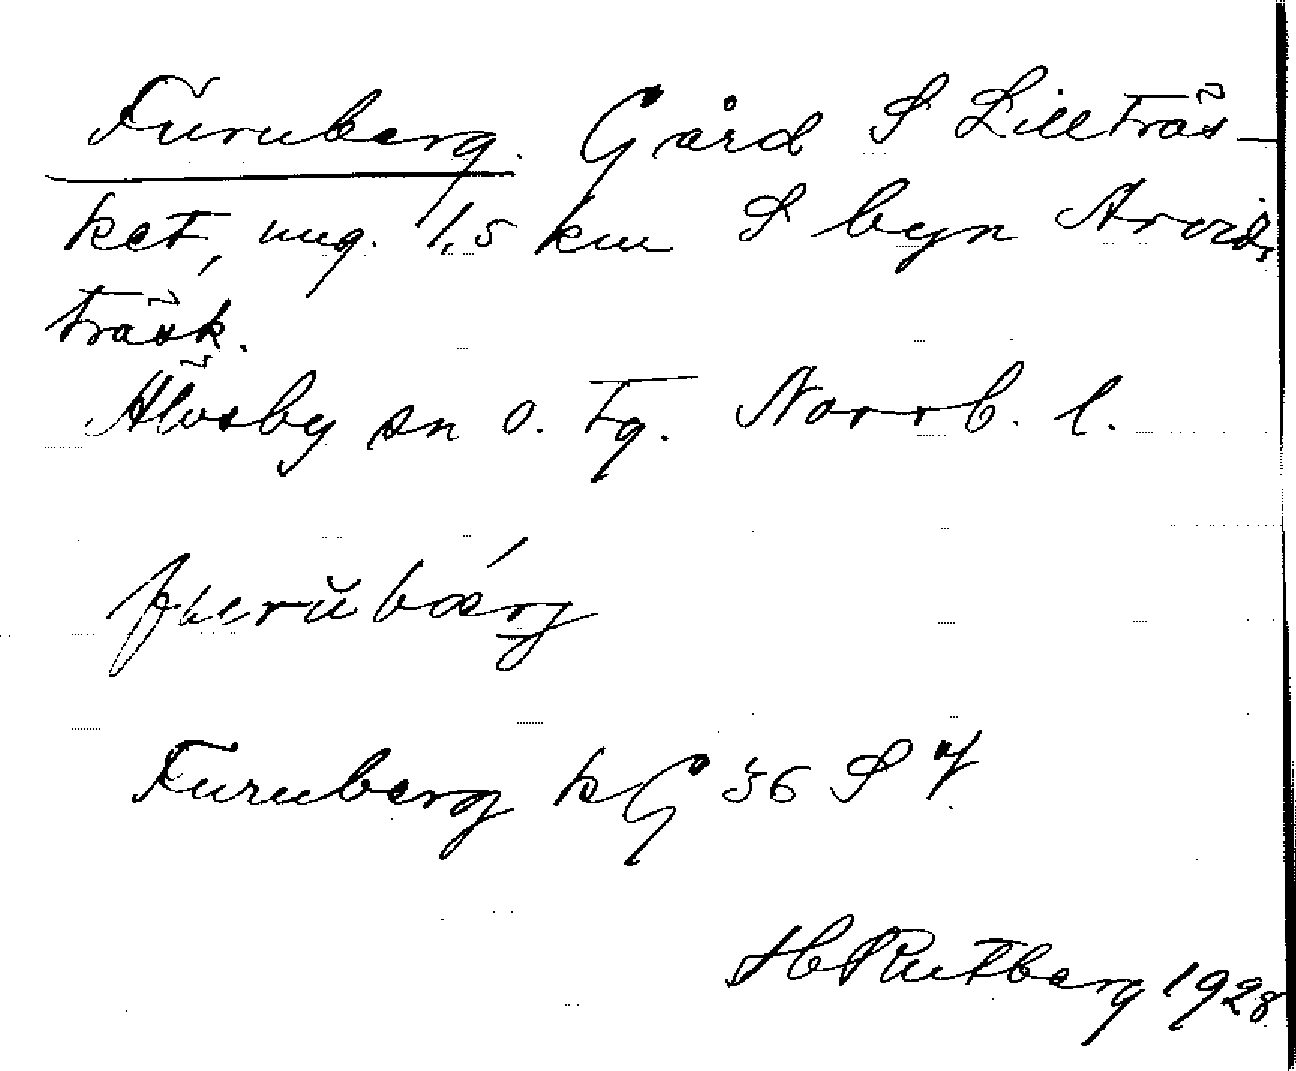 Furuberg. Gård S Lillträs-
ket, ung. 1,5 km S byn Arvids
träsk.
Älvsby sn o. tg. Norrb. l.
bárg
Furuberg kG 36 S 7
H Rutberg 1928